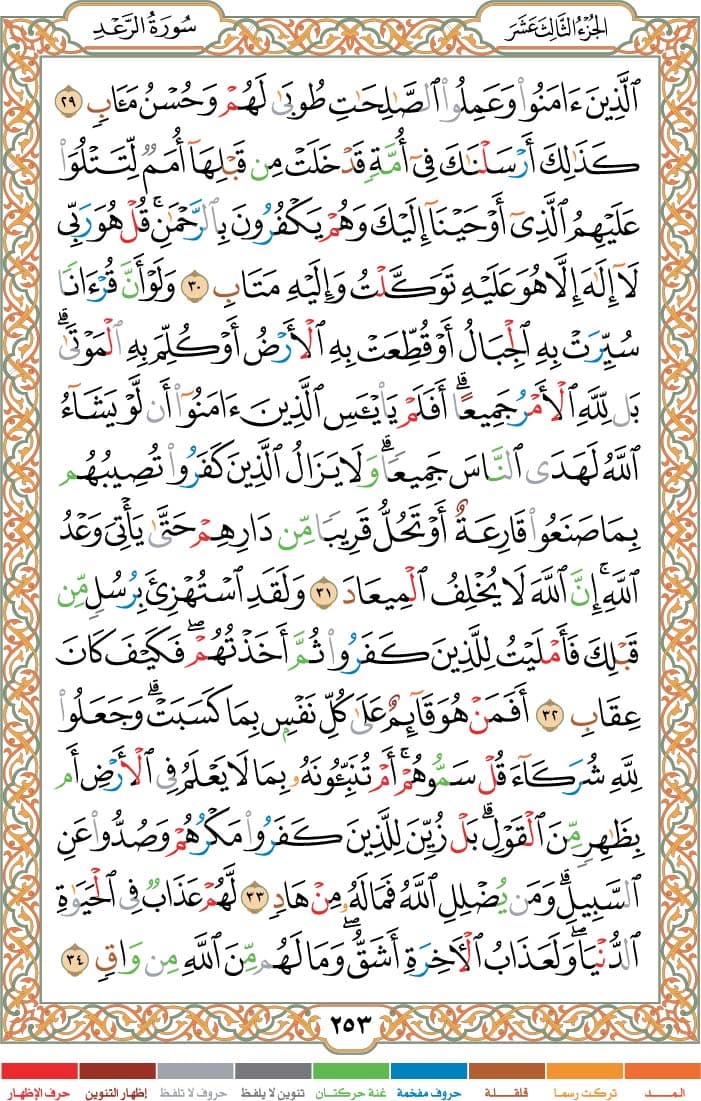 الجزء الثالث عشر
سورة الرعد
ٱلَّذِينَ ءَامَنُوا۟ وَعَمِلُوا۟ ٱلصَّٰلِحَٰتِ طُوبَىٰ لَهُمْ وَحُسْنُ مَـَٔابٍ ٢٩
كَذَٰلِكَ أَرْسَلْنَٰكَ فِىٓ أُمَّةٍ قَدْ خَلَتْ مِن قَبْلِهَآ أُمَمٌ لِّتَتْلُوَا۟
عَلَيْهِمُ ٱلَّذِىٓ أَوْحَيْنَآ إِلَيْكَ وَهُمْ يَكْفُرُونَ بِٱلرَّحْمَٰنِ ۚ قُلْ هُوَ رَبِّى
لَآ إِلَٰهَ إِلَّا هُوَ عَلَيْهِ تَوَكَّلْتُ وَإِلَيْهِ مَتَابِ ٣٠ وَلَوْ أَنَّ قُرْءَانًا
سُيِّرَتْ بِهِ ٱلْجِبَالُ أَوْ قُطِّعَتْ بِهِ ٱلْأَرْضُ أَوْ كُلِّمَ بِهِ ٱلْمَوْتَىٰ ۗ
بَل لِّلَّهِ ٱلْأَمْرُ جَمِيعًا ۗ أَفَلَمْ يَا۟يْـَٔسِ ٱلَّذِينَ ءَامَنُوٓا۟ أَن لَّوْ يَشَآءُ
ٱللَّهُ لَهَدَى ٱلنَّاسَ جَمِيعًا ۗ وَلَا يَزَالُ ٱلَّذِينَ كَفَرُوا۟ تُصِيبُهُم
بِمَا صَنَعُوا۟ قَارِعَةٌ أَوْ تَحُلُّ قَرِيبًا مِّن دَارِهِمْ حَتَّىٰ يَأْتِىَ وَعْدُ
ٱللَّهِ ۚ إِنَّ ٱللَّهَ لَا يُخْلِفُ ٱلْمِيعَادَ ٣١ وَلَقَدِ ٱسْتُهْزِئَ بِرُسُلٍ مِّن
قَبْلِكَ فَأَمْلَيْتُ لِلَّذِينَ كَفَرُوا۟ ثُمَّ أَخَذْتُهُمْ ۖ فَكَيْفَ كَانَ
عِقَابِ ٣٢ أَفَمَنْ هُوَ قَآئِمٌ عَلَىٰ كُلِّ نَفْسٍۭ بِمَا كَسَبَتْ ۗ وَجَعَلُوا۟
لِلَّهِ شُرَكَآءَ قُلْ سَمُّوهُمْ ۚ أَمْ تُنَبِّـُٔونَهُۥ بِمَا لَا يَعْلَمُ فِى ٱلْأَرْضِ أَم
بِظَٰهِرٍ مِّنَ ٱلْقَوْلِ ۗ بَلْ زُيِّنَ لِلَّذِينَ كَفَرُوا۟ مَكْرُهُمْ وَصُدُّوا۟ عَنِ
ٱلسَّبِيلِ ۗ وَمَن يُضْلِلِ ٱللَّهُ فَمَا لَهُۥ مِنْ هَادٍ ٣٣ لَّهُمْ عَذَابٌ فِى ٱلْحَيَوٰةِ
ٱلدُّنْيَا ۖ وَلَعَذَابُ ٱلْـَٔاخِرَةِ أَشَقُّ ۖ وَمَا لَهُم مِّنَ ٱللَّهِ مِن وَاقٍ ٣٤
٢٥٣
المـــد تركت رسما قلقــلة حروف مفخمة غنة حركتان تنوين لا يلفظ حروف لا تلفظ إظهار التنوين حرف الإظهار